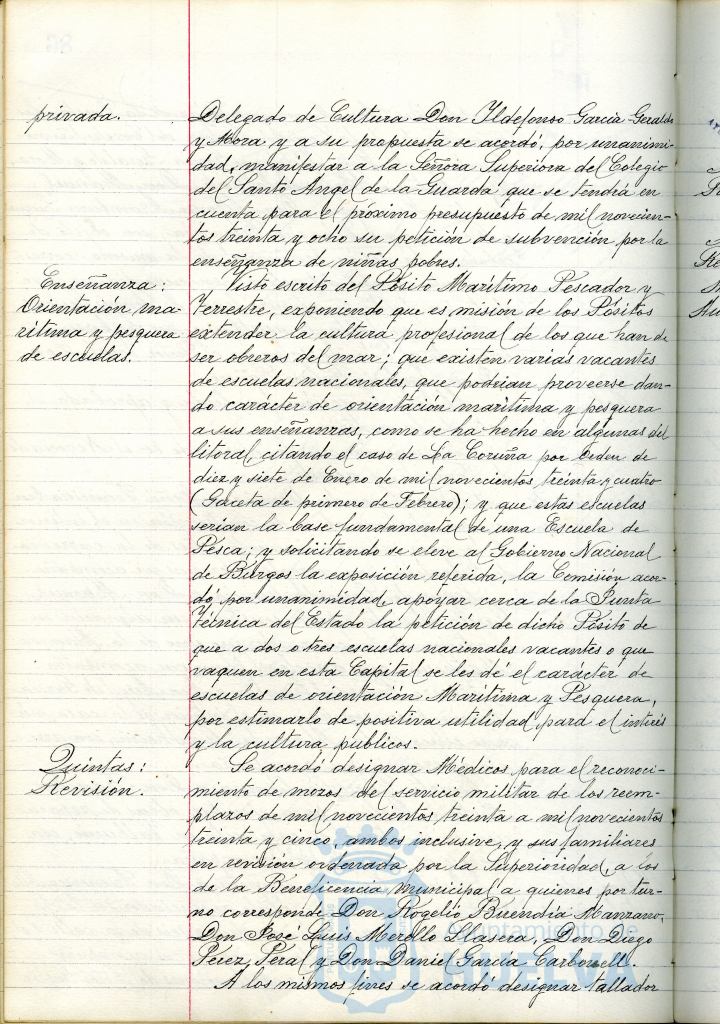 privada.
Delegado de Cultura Don Ildefonso García Geraldo
y Mora y a su propuesta se acordó, por unanimi-
dad, manifestar a la Señora Superiora del Colegio
del Santo Angel de la Guarda que se tendrá en
cuenta para el próximo presupuesto de mil novecien-
tos treinta y ocho su petición de subvención por la
enseñanza de niñas pobres.
Enseñanza:
Orientación ma-
rítima y pesquera
de escuelas.
Visto escrito del Pósito Marítimo Pescador y
Terrestre, exponiendo que es misión de los Pósitos
extender la cultura profesional de los que han de
ser obreros del mar; que existen varias vacantes
de escuelas nacionales, que podrian proveerse dan-
do carácter de orientación marítima y pesquera
a sus enseñanzas, como se ha hecho en algunas del
litoral citando el caso de La Coruña por Orden de
diez y siete de Enero de mil novecientos treinta y cuatro
(Gaceta de primero de Febrero); y que estas escuelas
serian la base fundamental de una Escuela de
Pesca; y solicitando se eleve al Gobierno Nacional
de Burgos la exposición referida, la Comisión acor-
dó, por unanimidad, apoyar cerca de la Junta
Técnica del Estado la petición de dicho Pósito de
que a dos o tres escuelas nacionales vacantes o que
vaquen en esta Capital se les dé el carácter de
escuelas de orientación Marítima y Pesquera,
por estimarlo de positiva utilidad para el interés
y la cultura publicos.
Quintas:
Revisión.
Se acordó designar Médicos para el reconoci-
miento de mozos del servicio militar de los reem-
plazos de mil novecientos treinta a mil novecientos
treinta y cinco, ambos inclusive, y sus familiares
en revisión ordenada por la Superioridad, a los
de la Beneficencia municipal a quienes por tur-
no corresponde Don Rogelio Buendía Manzano,
Don José Luis Merello Llasera, Don Diego
Perez Peral y Don Daniel García Carbonell.
A los mismos fines se acordó designar tallador
Ayuntamiento de
HUELVA